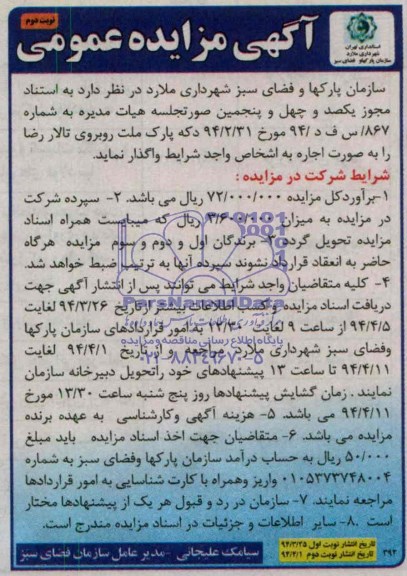 نوبت دوم
آگهی مزایده عمومی
استانداری تهران
شهرداری ملارد
سازمان پارکها و فضای سبز
سازمان پارکها و فضای سبز شهرداری ملارد در نظر دارد به استناد
مجوز یکصد و چهل و پنجمین صورتجلسه هیات مدیره به شماره
۸۶۷/ س ف د /۹۴ مورخ ۹۴/۲/۳۱ دکه پارک ملت روبروی تالار رضا
را به صورت اجاره به اشخاص واجد شرایط واگذار نماید.
شرایط شرکت در مزایده :
۱-برآوردکل مزایده ۷۲/۰۰۰/۰۰۰ ریال می باشد. ۲- سپرده شرکت
در مزایده به میزان ریال که میبایست همراه اسناد
مزایده تحویل گردد. ۳- برندگان اول و دوم و سوم مزایده هرگاه
حاضر به انعقاد قرارداد نشوند سپرده آنها به ترتیب ضبط خواهد شد.
۴- کلیه متقاضیان واجد شرایط می توانند پس از انتشار آگهی جهت
دریافت اسناد مزایده و کسب اطلاعات بیشتر از تاریخ ۹۴/۳/۲۶ لغایت
۹۴/۴/۵ از ساعت ۹ لغایت ۱۲/۳۰ به امور قراردادهای سازمان پارکها
وفضای سبز شهرداری ملارد مراجعه و از تاریخ ۹۴/۴/۱ لغایت
۹۴/۴/۱۱ تا ساعت ۱۳ پیشنهادهای خود راتحویل دبیرخانه سازمان
نمایند . زمان گشایش پیشنهادها روز پنج شنبه ساعت ۱۳/۳۰ مورخ
۹۴/۴/۱۱ می باشد. ۵- هزینه آگهی وکارشناسی به عهده برنده
مزایده می باشد. ۶- متقاضیان جهت اخذ اسناد مزایده باید مبلغ
۵۰/۰۰۰ ریال به حساب درآمد سازمان پارکها وفضای سبز به شماره
۰۱۰۵۳۷۳۷۴۸۰۰۴ واریز وهمراه با کارت شناسایی به امور قراردادها
مراجعه نمایند. ۷- سازمان در رد و قبول هر یک از پیشنهادها مختار
است .۸- سایر اطلاعات و جزئیات در اسناد مزایده مندرج است.
۳۹۲
تاریخ انتشار نوبت اول ۹۴/۳/۲۵
تاریخ انتشار نوبت دوم ۹۴/۴/۱
سیامک علیجانی -مدیر عامل سازمان فضای سبز
ParsNamadData
پایگاه اطلاع رسانی مناقصه و مزایده
۰۲۱-۸۸۳۴۹۶۷۰-۵